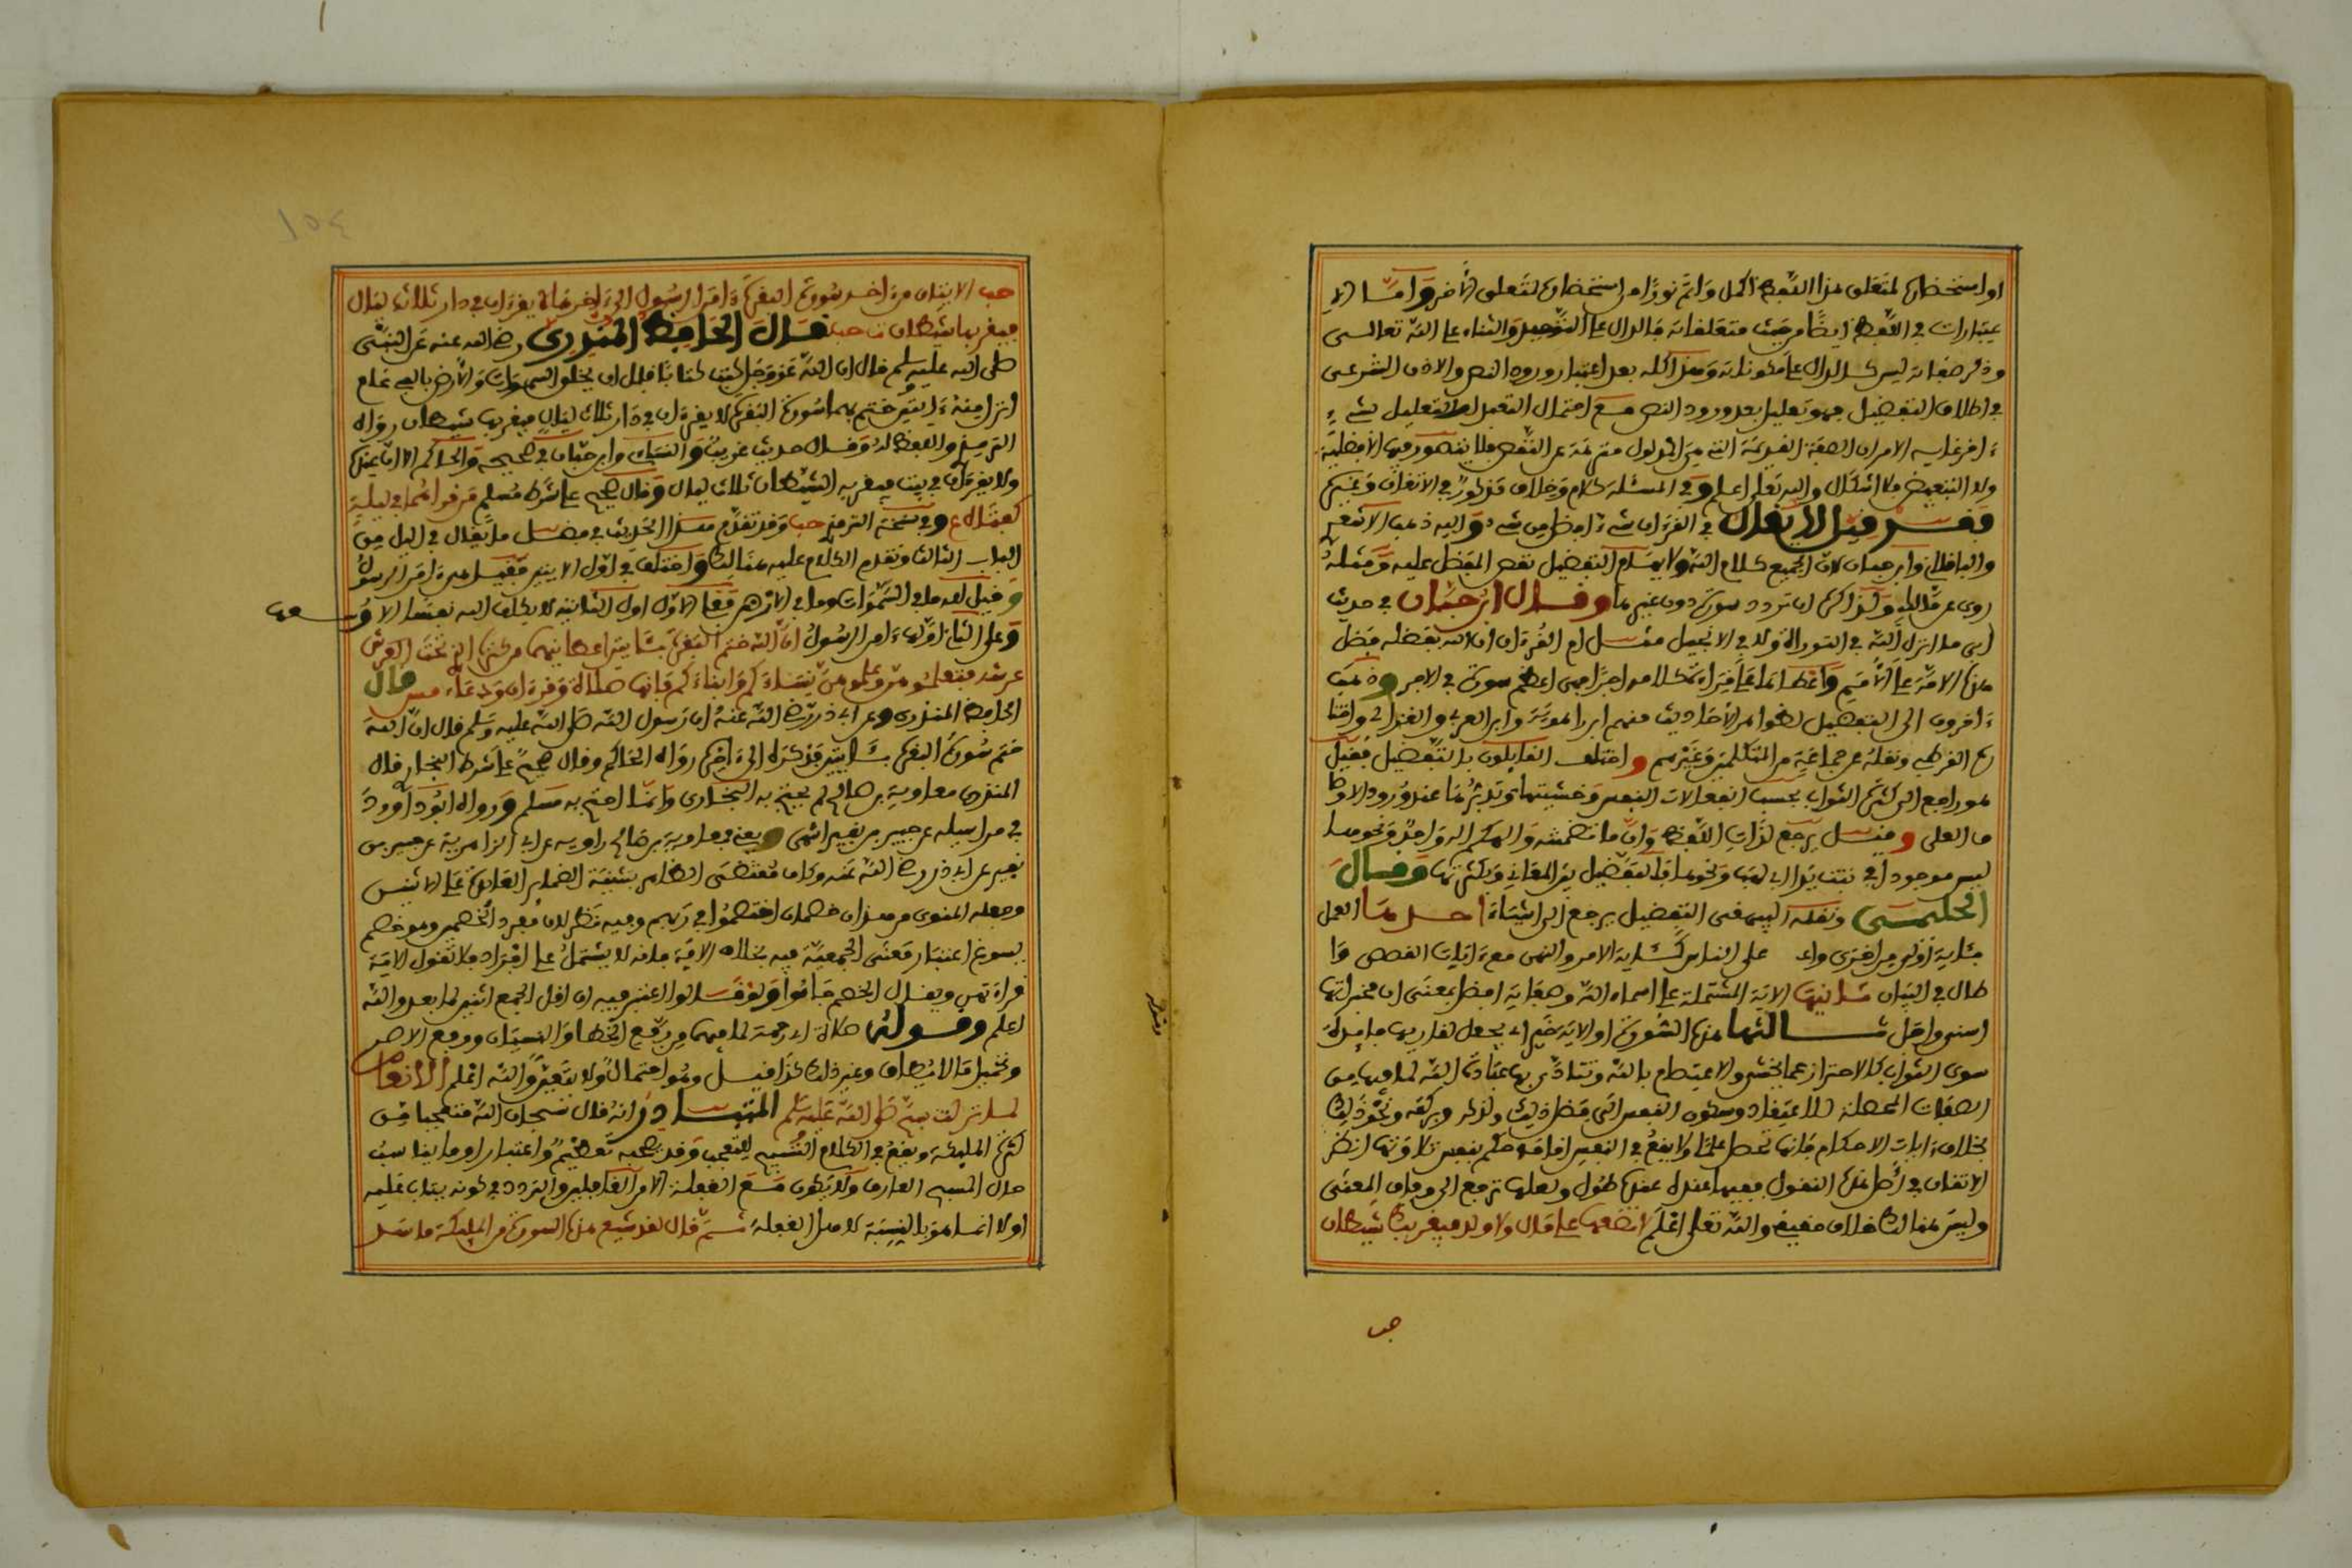 او استحضارها لمتعلق هذا اللفظ اكمل واتم نورا من استحضارها لمتعلق الآخر واما الا
عتبارات في اللفظ ايضا من حيث متعلقاته فالدال على التوحيد والثناء على الله تعالى
وذكر صفاته ليس كالدال على مكوناته وهذا كله بعد اعتبار ورود النص والاذن الشرعي
في اطلاق التفضيل فهو تعليل بعد ورود النص مع احتمال التعبد لا التعليل بشيء
ولا التبعيض فلا اشكال والله تعلى اعلم وفي المسئلة كلام وخلاف مذكور في الاتقان وغيره
في القرءان شيء افضل من شيء واليه ذهب الاشعري
والباقلاني وابن حبان لان الجميع كلام الله ولا يسلم التفضيل نقص المفضل عليه ومثله
روي عن مالك ولذا كره ان تردد سورة دون غيرها وقال ابن حبان في حديث
ابي ما انزل الله في التوراة ولا في الانجيل مثل ام القرءان ان الله بفضله فضل
هذه الامة على الامم واعطاها على قراءة كلامه اجرا يعني اعظم سورة في الاجر وذهب
ءاخرون الى التفضيل لظواهر الاحاديث منهم ابن راهويه وابن العربي والغزالي واختا
ره القرطبي ونقله عن جماعة من المتكلمين وغيرهم واختلف القايلون بالتفضيل فقيل
هو راجع الى كثرة الثواب بحسب انفعالات النفس وخشيتها وتدبرها عند ورود الاوصا
ف العلى وقيل يرجع لذات اللفظ وان ما تضمنه والهكم اله واحد ونحوهما
ليس موجودا في تبت يدا ابي لهب ونحوها فالتفضيل بين المعاني وكثرتها وقال
الحليمي ونقله البيهقي التفضيل يرجع الى اشياء احدها العمل
بئاية اولى من اخرى على الناس كئاية الامر والنهي مع ءايات القصص وا
طال في البيان ثانيها الاية المشتملة على اسماء الله وصفاته افضل بمعنى ان مخبراتها
اسنى واجل ثالثها هذه السورة او الاية خير اي يجعل لقاريها فايدة
سوى الثواب كالاحتراز عما يخشى والاعتصام بالله وتتادى بها عبادة الله لما فيها من
بخلاف ءايات الاحكام
الاتقان في
وليس هنا لك خلاف حقيقة والله تعلى اعلم لا تقطعها على قال ولا ولد فيقربك شيطان
حب
حب الايتان من اخر سورة البقرة ءامن الرسول الى ءاخرها لا يقرءان في دار ثلاث ليال
فيقربها شيطان ت حب قال الحافظ المنذري رضي الله عنه عن النبيء
صلى الله عليه وسلم قال ان الله عز وجل كتب كتابا قبل ان يخلق السموات والارض بالفي عام
انزل منه ءايتين ختم بهما سورة البقرة لا يقرءان في دار ثلاث ليال فيقربها شيطان رواه
الترمذي واللفظ له وقال حديث غريب والنساءي وابن حبان في صحيحه والحاكم الا ان عنده
ولا يقرءان في بيت فيقربه الشيطان ثلاث ليال وقال صحيح على شرط مسلم من قراهما في ليلة
كفتاه ع وفي نسخة الترمذي حب وقد تقدم هذا الحديث في فضل ما يقال في الليل من
الباب الثالث وتقدم الكلام عليه هنالك واختلف في اول الايتين فقيل هي ءامن الرسول
وقيل لله ما في السموات وما في الارض فعلى الاول اول الثانية لا يكلف الله نفسا الا وسعها
وعلى الثاني اولها ءامن الرسول ان الله ختم البقرة بئايتين اعطانيهما من كنزه الذي تحت العرش
عرشه فتعلموهن وعلموهن نساءكم وابناءكم فانها صلاة وقرءان ودعاء مس قال
الحافظ المنذري وعن ابي ذر رضي الله عنه ان رسول الله صلى الله عليه وسلم قال ان الله
ختم سورة البقرة بئايتين فذكره الى ءاخره رواه الحاكم وقال صحيح على شرط البخاري قال
المنذري معاوية بن صالح لم يحتج به البخاري وانما احتج به مسلم ورواه ابو داوود
في مراسيله عن جبير بن نفير انتهى ويعني بمعاوية بن صالح راويه عن ابي الزاهرية عن جبير بن
نفير عن ابي ذر رضي الله عنه وكان مقتضى الظاهر تثنية الضماير العايدة على الايتين
وجعله المنوي من هذان خصمان اختصموا في ربهم وفيه نظر لان مفرد الخصمين وهو خصم
يسوغ اعتبار معنى الجمعية فيه بخلاف الاية فانه لا يشتمل على افراد فلا تقول الاية
قراءتهن ويقال الخصم جاءوا ولو قالوا اعتبر فيه ان اقل الجمع اثنين لما بعد والله
اعلم وقوله صلاة اي رحمة لما فيها من رفع الخطا والنسيان ووضع الاصر
وتحميل ما لا يطاق وغير ذلك كذا قيل وهو احتمال ولا يتعين والله اعلم الانعام
لما نزلت سبح صلى الله عليه وسلم المتبادر انه قال سبحان الله متعجبا من
كثرة المليكة ويقع في الكلام التسبيح للتعجب وقد يصحبه تعظيم واعتبار او ما يناسب
حال المسبح العارف ولا يكون مع الغفلة الا من الغافلين والتردد في كونه يثاب عليه
او لا انما هو بالنسبة لاهل الغفلة ثم قال لقد شيع هذه السورة من المليكة ما سد